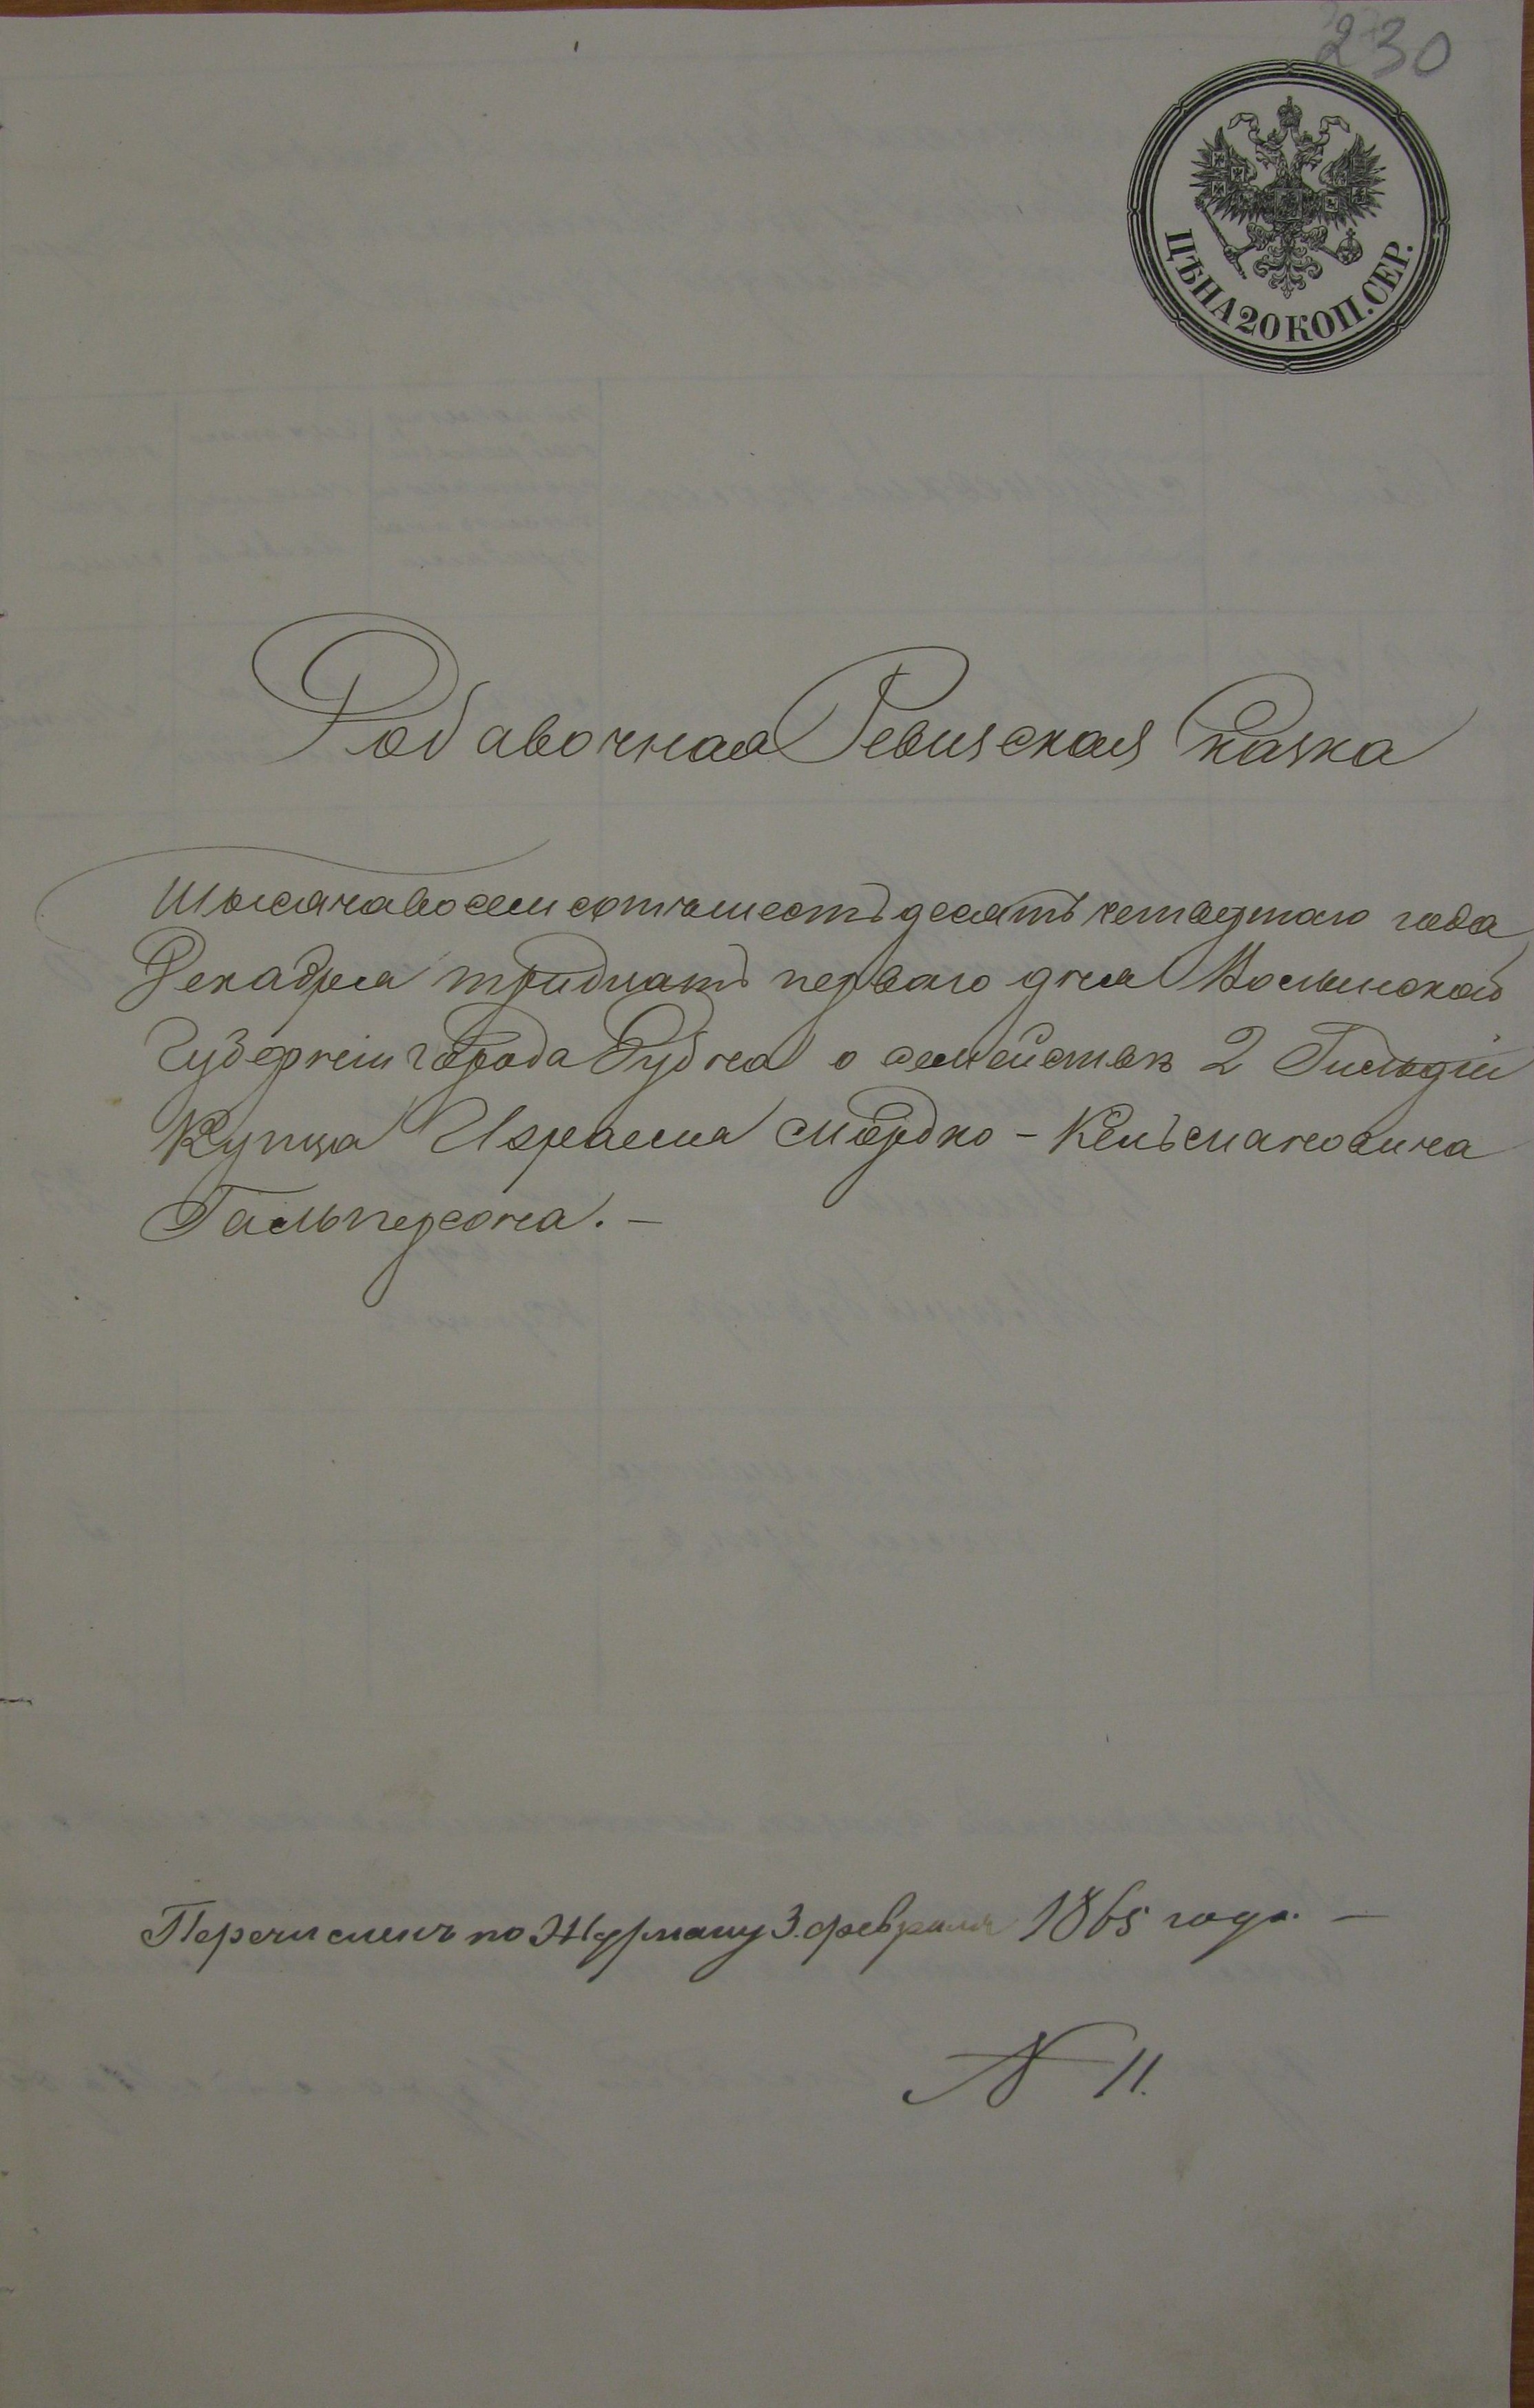 230
ЦѢНА 20 КОП. СЕР.
Добавочная Ревизская Сказка
Тысяча восемсотъ шестьдесятъ четвертаго года
Декабря тридцать перваго дня Волынской
Губерніи города Дубна о семействѣ 2 Гильдіи
Купца Израиля Мордко-Кельмановича
Гальперсона. —
Перечисленъ по Журналу 3. февраля 1865 года. —
№ 11.